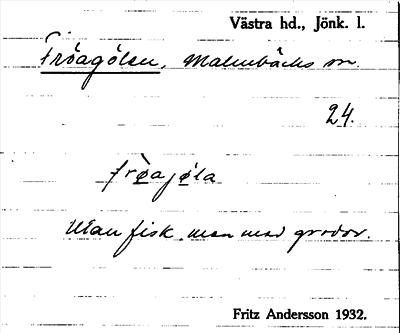 Västra hd., Jönk. l.
Fröagölen, Malmbäcks sn.
24.
frǿajǿla
Utan fisk men med grodor.
Fritz Andersson 1932.